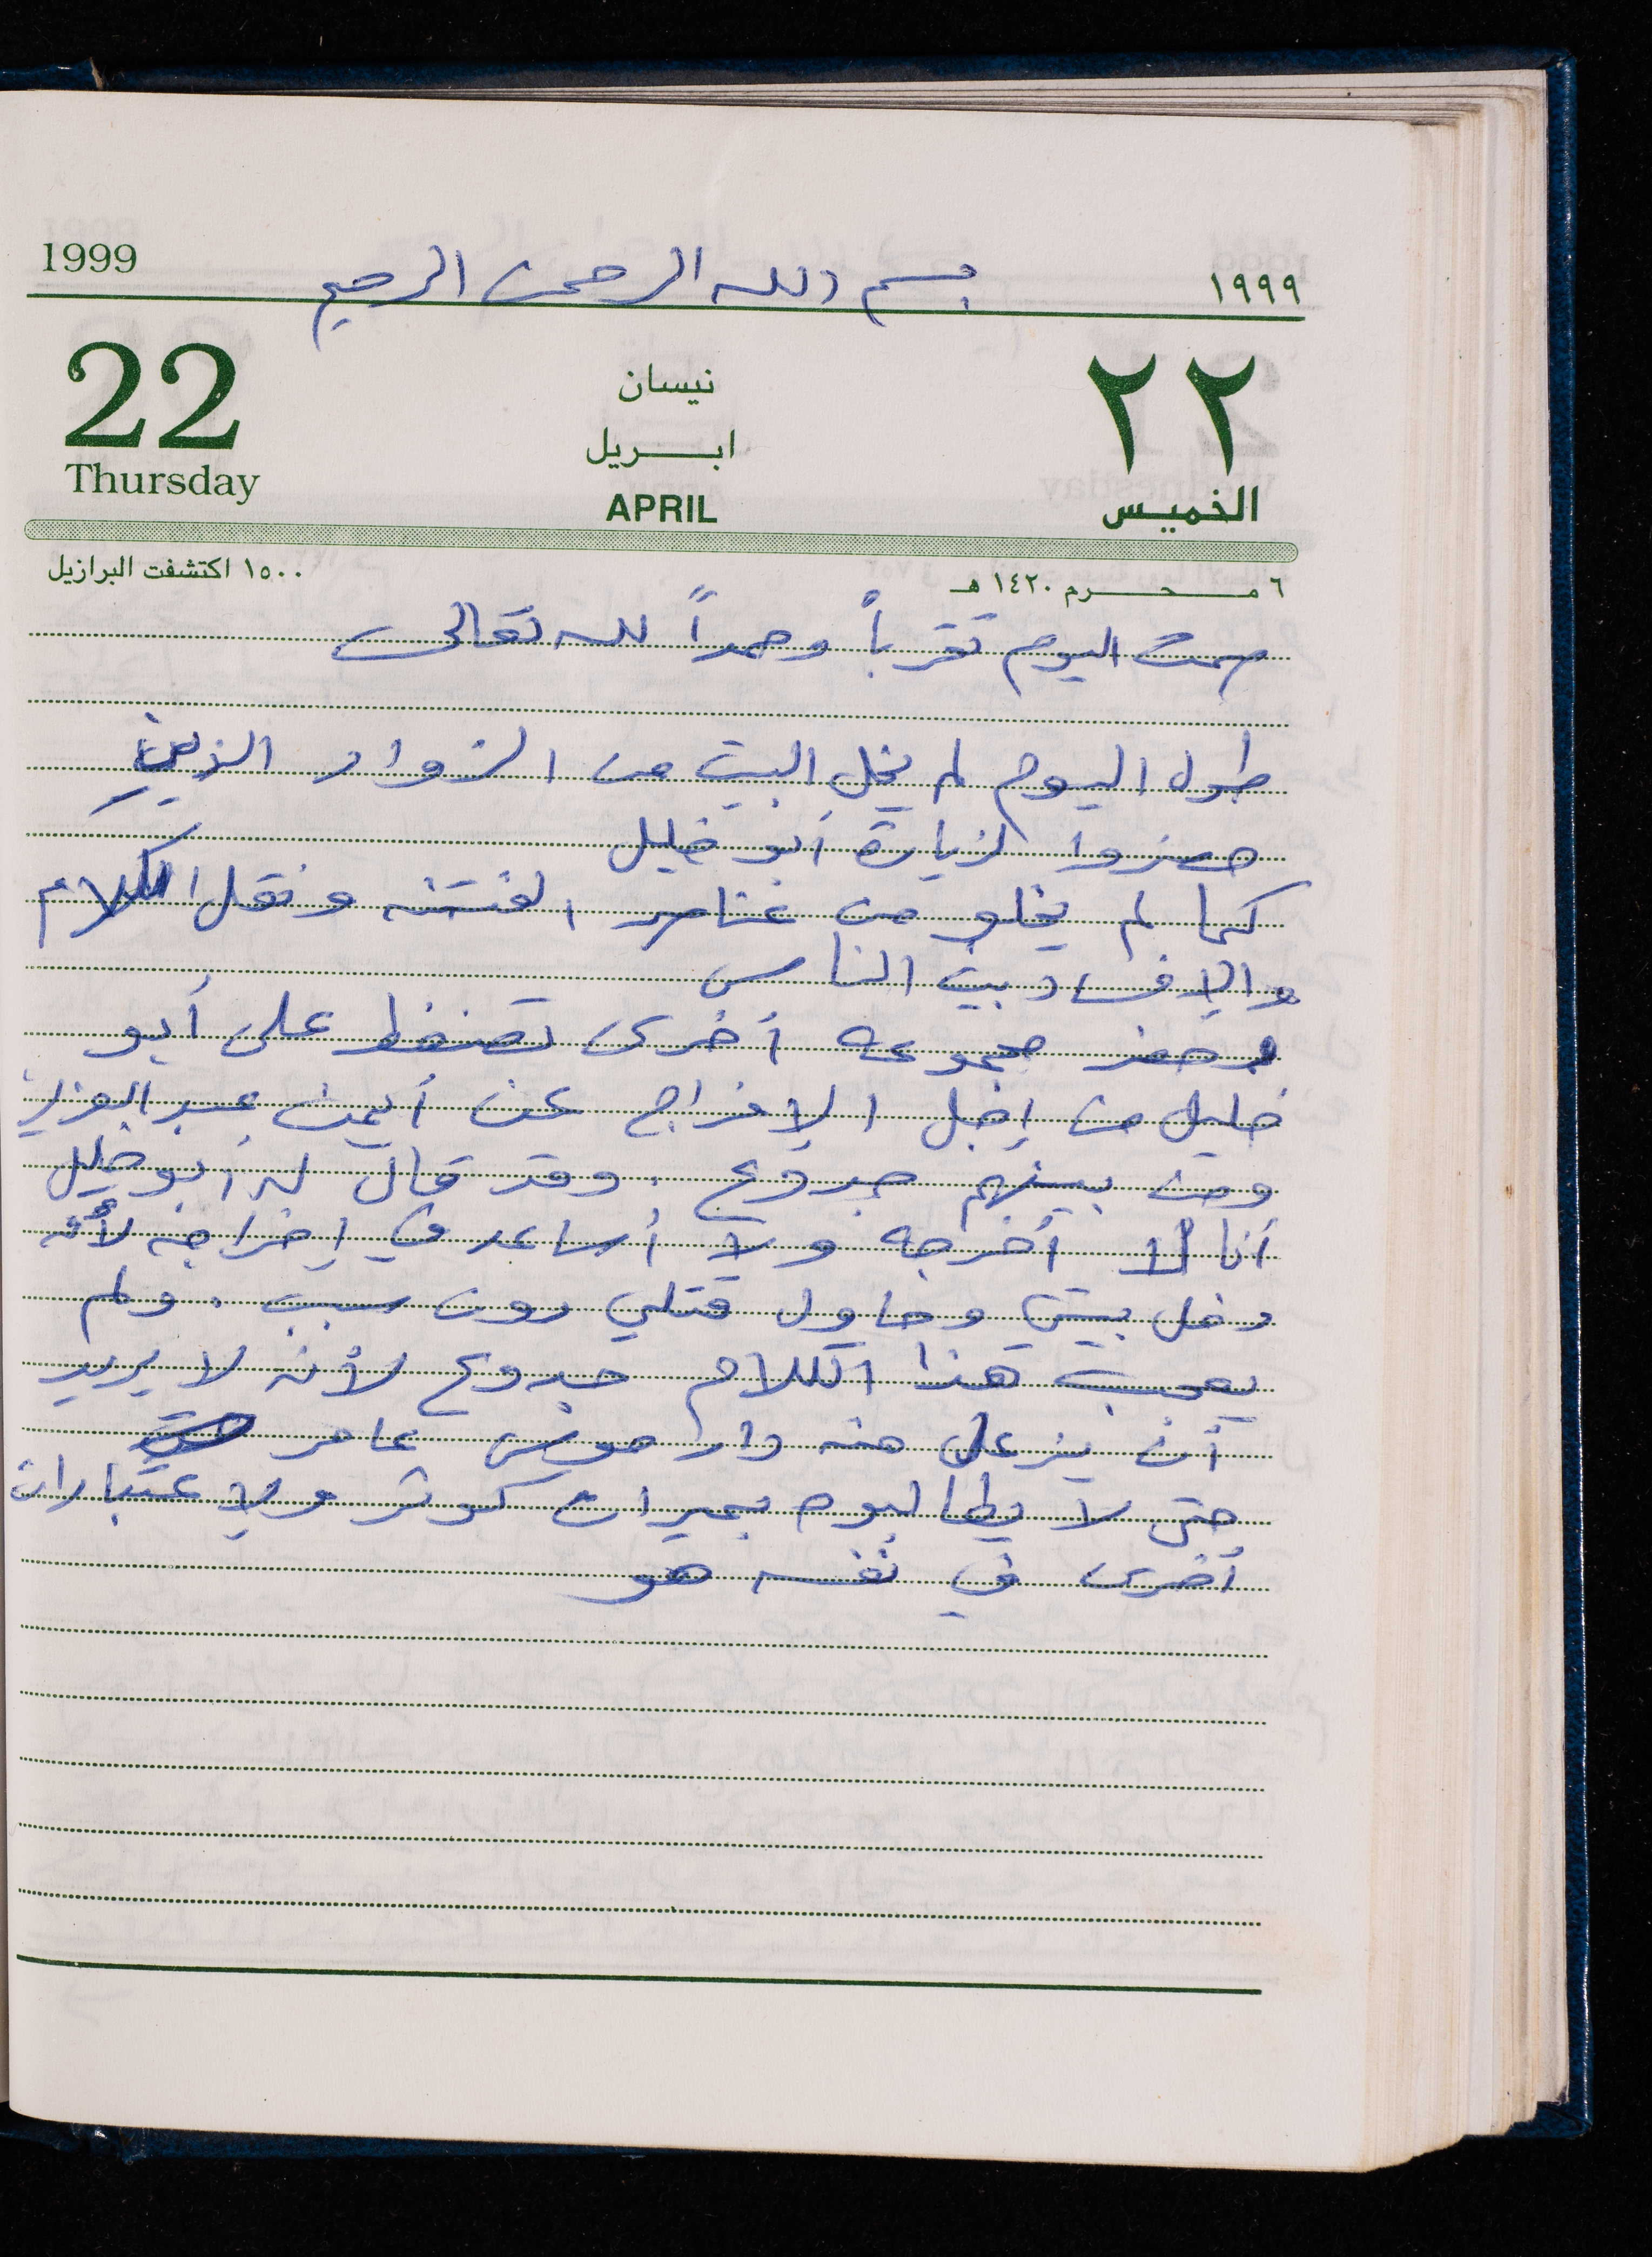 1999 بسم الله الرحمن الرحيم ١٩٩٩
22 نيسان ٢٢
ابريل
Thursday APRIL الخميس
١٥٠٠ اكتشفت البرازيل ٦ محرم ١٤٢٠ هـ
صمت اليوم تقرباً وحمداً لله تعالى
طول اليوم لم يخل البيت من الزوار الذين
حضروا لزيارة أبو خليل
كما لم يخلو من عناصر الفتنه ونقل الكلام
والإفساد بين الناس
وحضر مجموعه أخرى تضغط على أبو
خليل من اجل الإفراج عن أيمن عبد العزيز
ومن بينهم جدوع. وقد قال له أبو خليل
أنا لا أخرجه ولا أساعد في إخراجه لأنه
دخل بيتي وحاول قتلي دون سبب. ولم
يعجب هذا الكلام جدوع لأنه لا يريد
أن يزعل منه دار موسى عامر
حتى لا يطالبوه بميراث كوثر ولإعتبارات
أخرى في نفسه هو